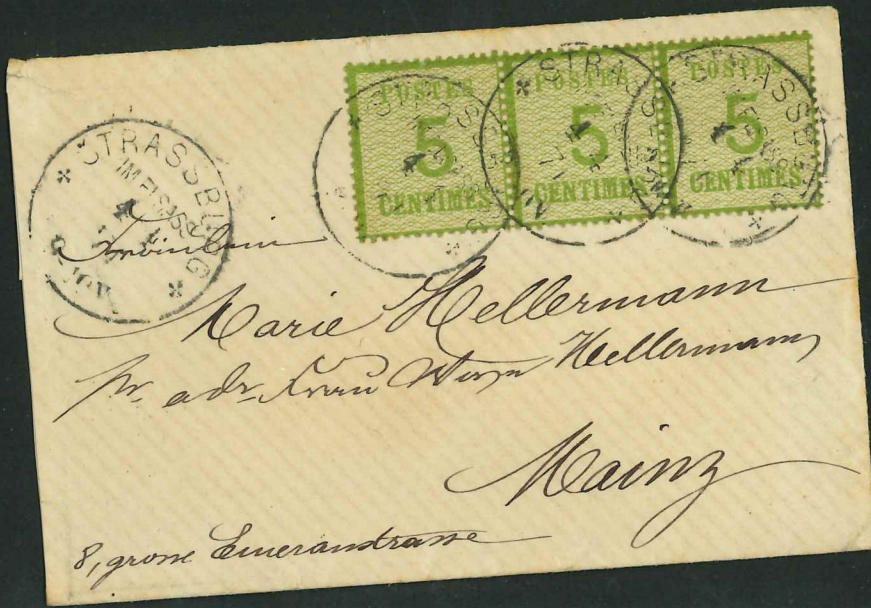 POSTES 5 CENTIMES
POSTES 5 CENTIMES
POSTES 5 CENTIMES
STRASSBURG
IM ELSASS
Fräulein
Marie Hellermann
pr. adr. Frau Hellermann
Mainz
8, grosse Emeranstrasse